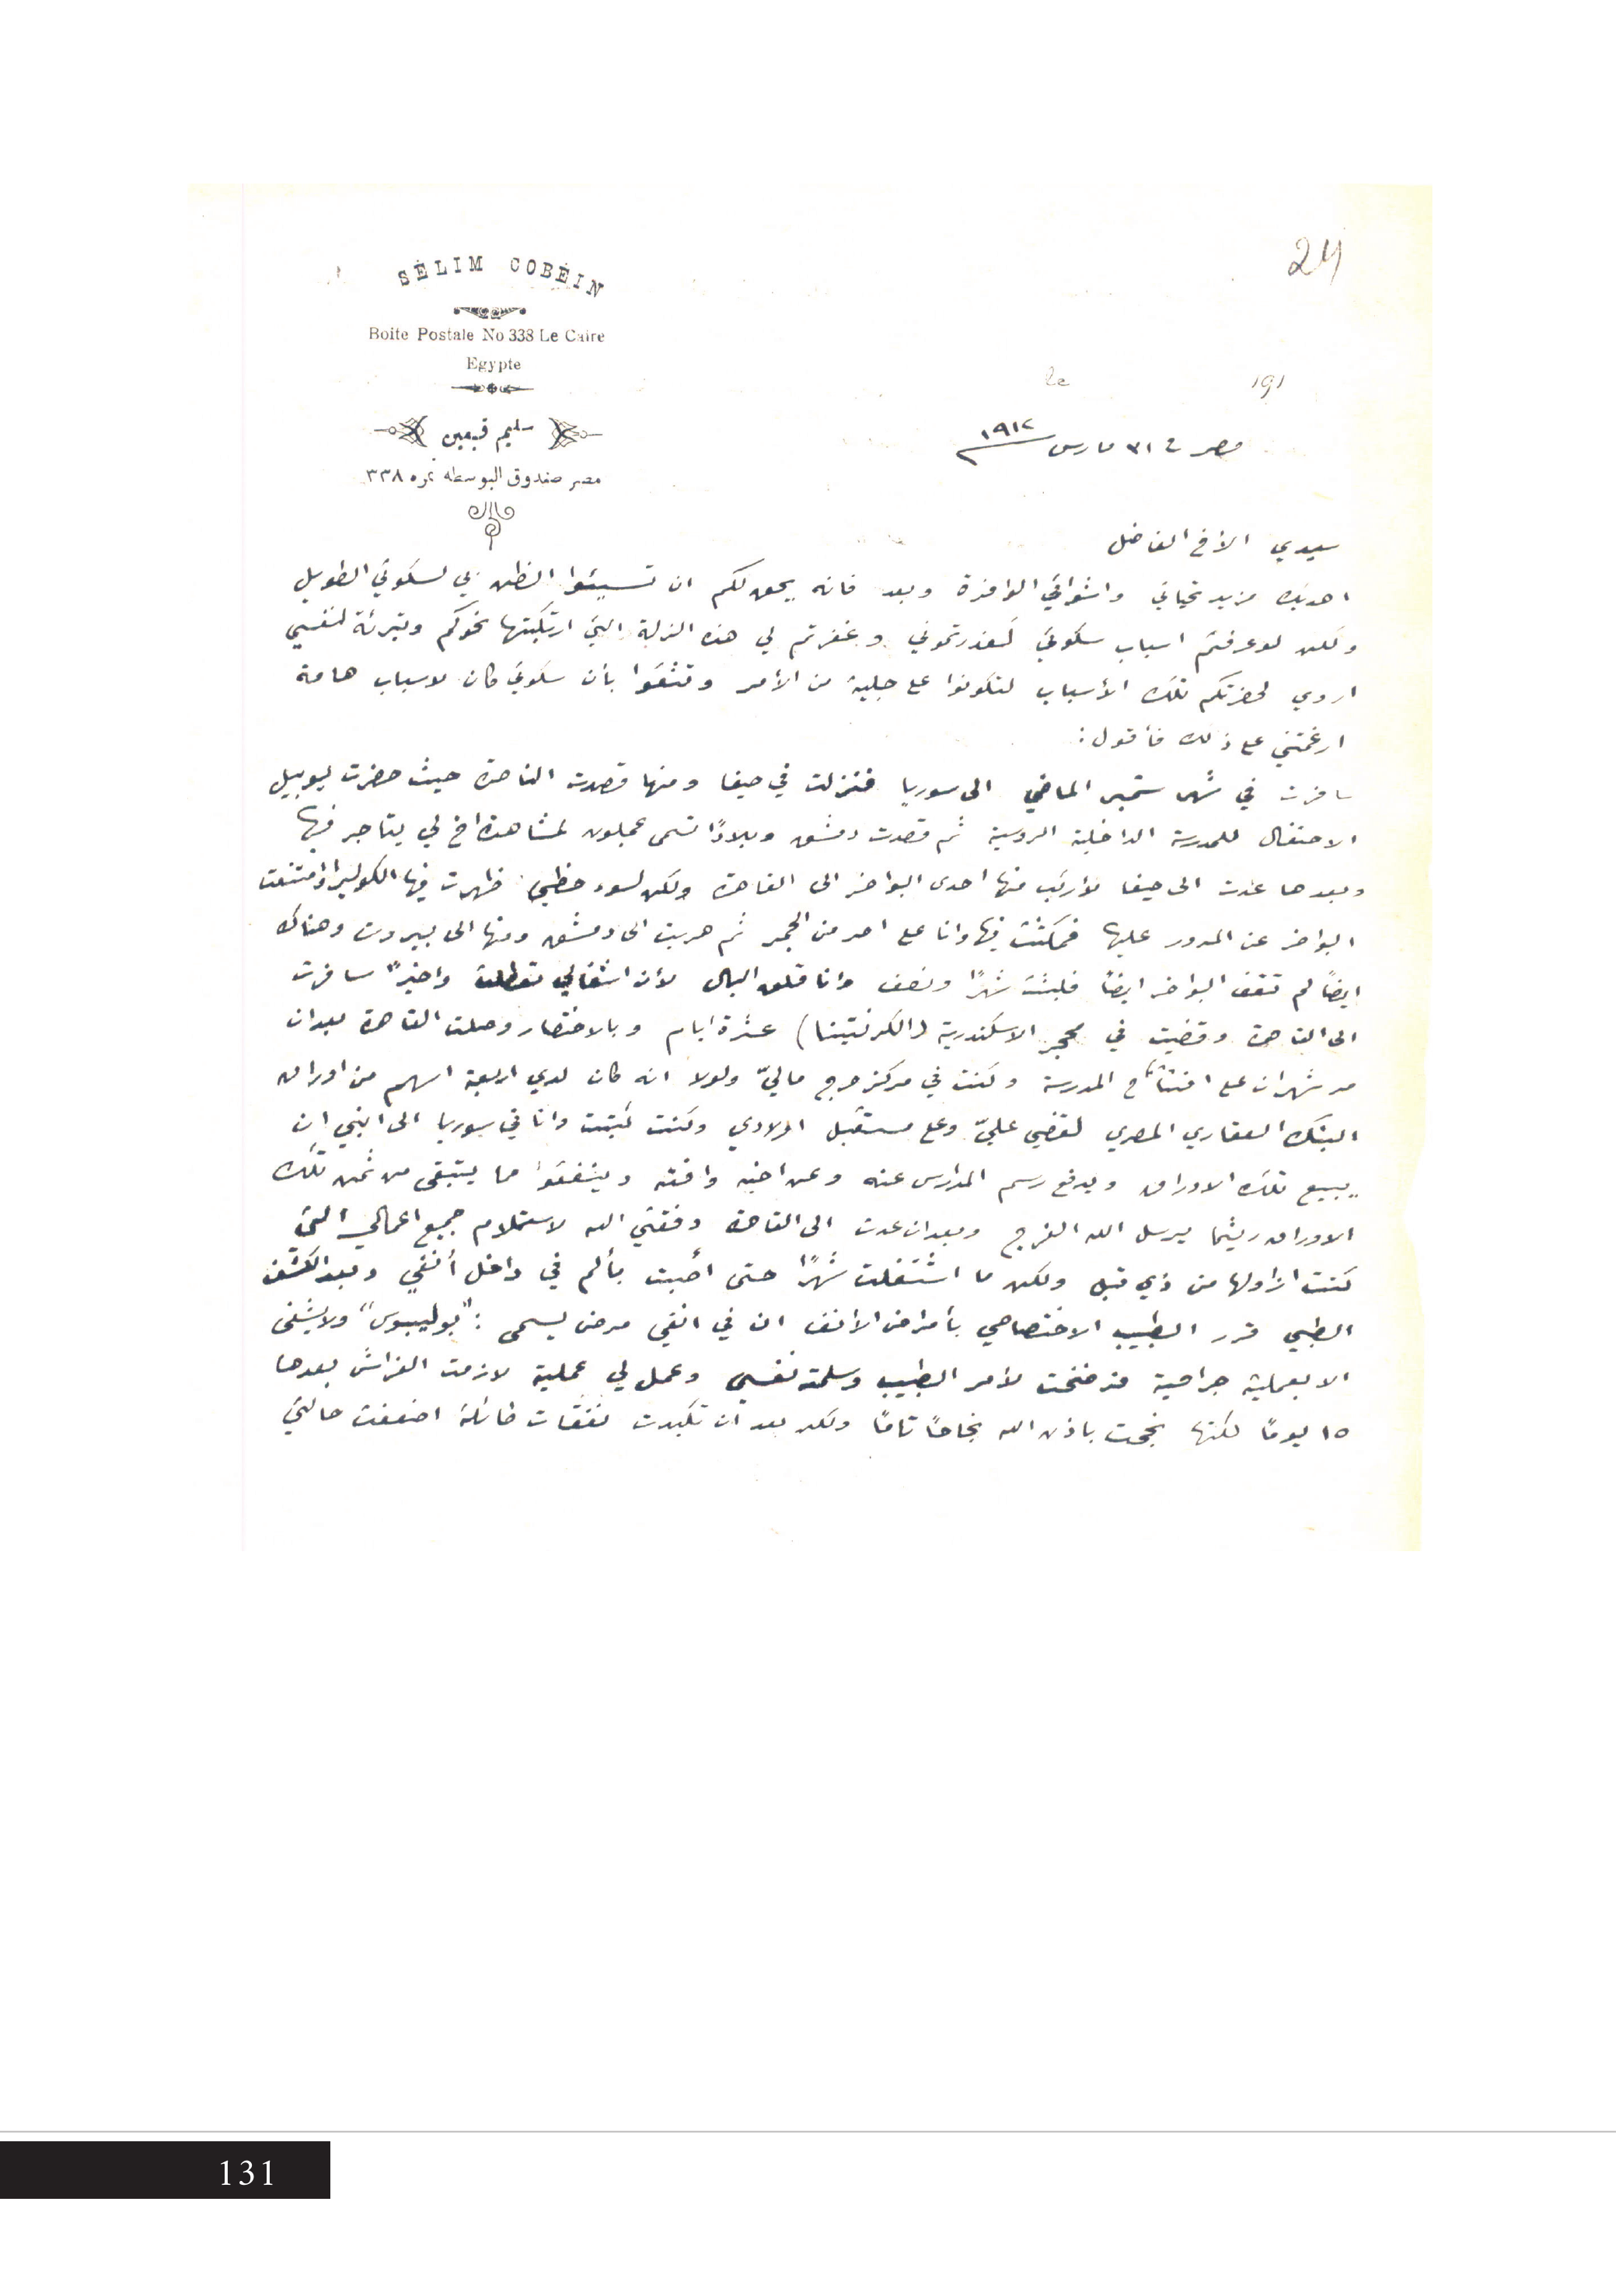 24
SÉLIM COBÉIN
Boite Postale No 338 Le Caire
Egypte
le 191
سليم قبعين
مصر صندوق البوسطه نمره ٣٣٨
مصر في ٣١ مارس ١٩١٢
سيدي الأخ الفاضل
اهديك مزيد تحياتي واشواقي الوافرة وبعد فانه يحق لكم ان تسيئوا الظن بي لسكوتي الطويل
ولكن لو عرفتم اسباب سكوتي لعذرتموني وغفرتم لي هذه الزلة التي ارتكبتها نحوكم وتبرئة لنفسي
اروي لحضرتكم تلك الأسباب لتكونوا على جلية من الأمر وتثقوا بأن سكوتي كان لاسباب هامة
ارغمتني على ذلك فأقول:
سافرت في شهر ستمبر الماضي الى سوريا فنزلت في حيفا ومنها قصدت الناصرة حيث حضرت يوبيل
الاحتفال للمدرسة الداخلية الروسية ثم قصدت دمشق وبلادًا تسمى عجلون لمشاهدة اخ لي يتاجر فيها
وبعدها عدت الى حيفا لأركب منها احدى البواخر الى القاهرة ولكن لسوء حظي ظهرت فيها الكوليرا وامتنعت
البواخر عن المرور عليها فمكثت فيها وانا على احر من الجمر ثم هربت الى دمشق ومنها الى بيروت وهناك
ايضاً لم تقف البواخر ايضاً فلبثت شهرًا ونصف وانا قلق البال لأن اشغالي تعطلت واخيرًا سافرت
الى القاهرة وقضيت في محجر الاسكندرية (الكرنتينا) عشرة ايام وبالاختصار وصلت القاهرة بعد ان
مر شهران على افتتاح المدرسة وكنت في مركز حرج ماليّ ولولا انه كان لدي اربعة اسهم من اوراق
البنك العقاري المصري لقضي عليّ وعلى مستقبل اولادي وكنت كتبت وانا في سوريا الى ابني ان
يبيع تلك الاوراق ويدفع رسم المدارس عنه وعن اخيه واخته وينفقوا ما يتبقى من ثمن تلك
الاوراق ريثما يرسل الله الفرج وبعد ان عدت الى القاهرة وفقني الله لاستلام جميع اعمالي التي
كنت ازاولها من ذي قبل ولكن ما اشتغلت شهرًا حتى أُصبت بألم في داخل أنفي وبعد الكشف
الطبي قرر الطبيب الاختصاصي بأمراض الأنف ان في انفي مرض يسمى: "بوليبوس" ولا يشفى
الا بعملية جراحية فرضخت لأمر الطبيب وسلمته نفسي وعمل لي عملية لازمت الفراش بعدها
١٥ يومًا لكنها نجحت باذن الله نجاحًا تامًا ولكن بعد ان تكبدت نفقات طائلة اضعفت حالتي
131